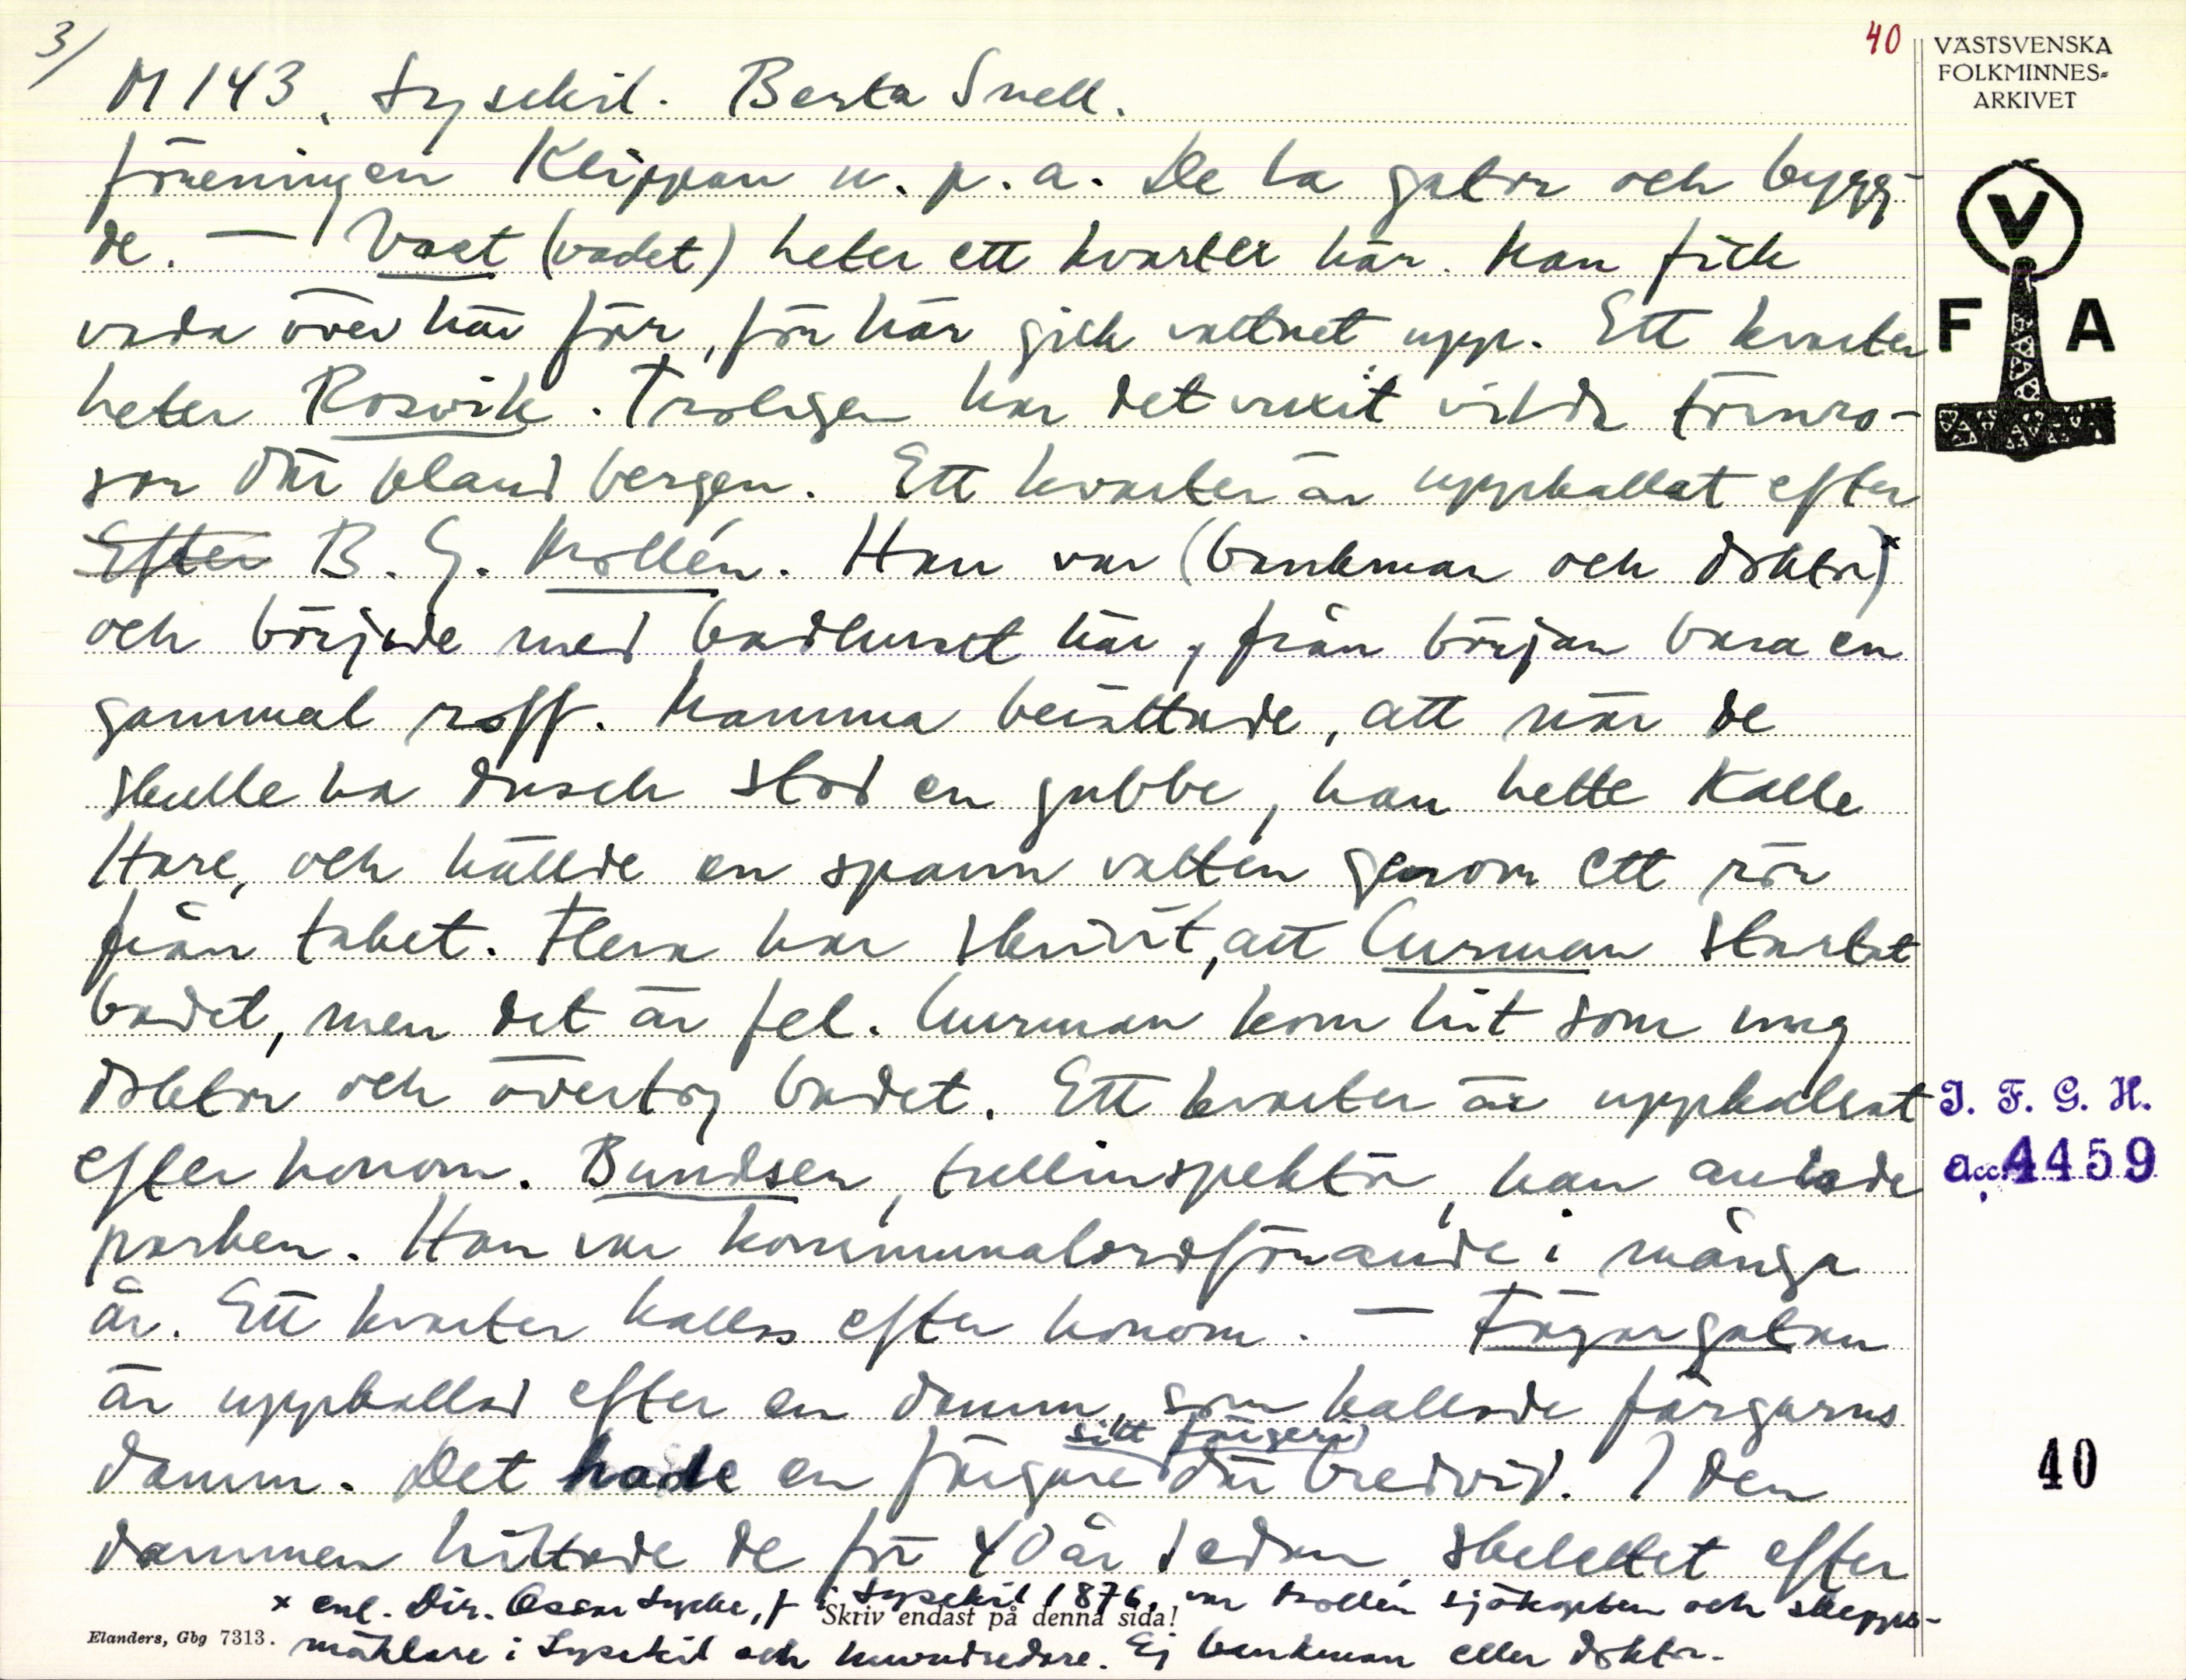 3/
40
VÄSTSVENSKA
FOLKMINNES-
ARKIVET
M 143. Lysekil. Berta Snell.
föreningen Klippan u. p. a. De la gator och bygg-
de. — Vaet (vadet) heter ett kvarter här. Man fick
vada över här för, för här gick vattnet upp. Ett kvarter
heter Rosvik. Troligen har det vuxit vilda törnro-
sor där bland bergen. Ett kvarter är uppkallat efter
Efter B. G. Mollén. Han var (bankman och doktor)x
och började med badhuset här, från början bara en
gammal roff. Mamma berättade, att när de
skulle ha dusch stod en gubbe, han hette Kalle
Hare, och hällde en spann vatten genom ett rör
från taket. Flera har skrivit, att Curman startat
badet, men det är fel. Curman kom hit som ung
doktor och övertog badet. Ett kvarter är uppkallat
efter honom. Bundsen, tullinspektör, han anlade
parken. Han var kommunalordförande i många
år. Ett kvarter kallas efter honom. — Färgargatan
är uppkallad efter en damm, som kallade färgarns
sitt färgeri
damm. Det hade en färgare där bredvid. I den
dammen hittade de för 40 år sedan skelettet efter
x enl. Dir. Oscar Lycke, f i Lysekil 1876, var Mollén sjökapten och skepps-
Skriv endast på denna sida!
mäklare i Lysekil och huvudredare. Ej bankman eller doktor.
Elanders, Gbg 7313.
V
F A
I. F. G. H.
acc. 4459
40